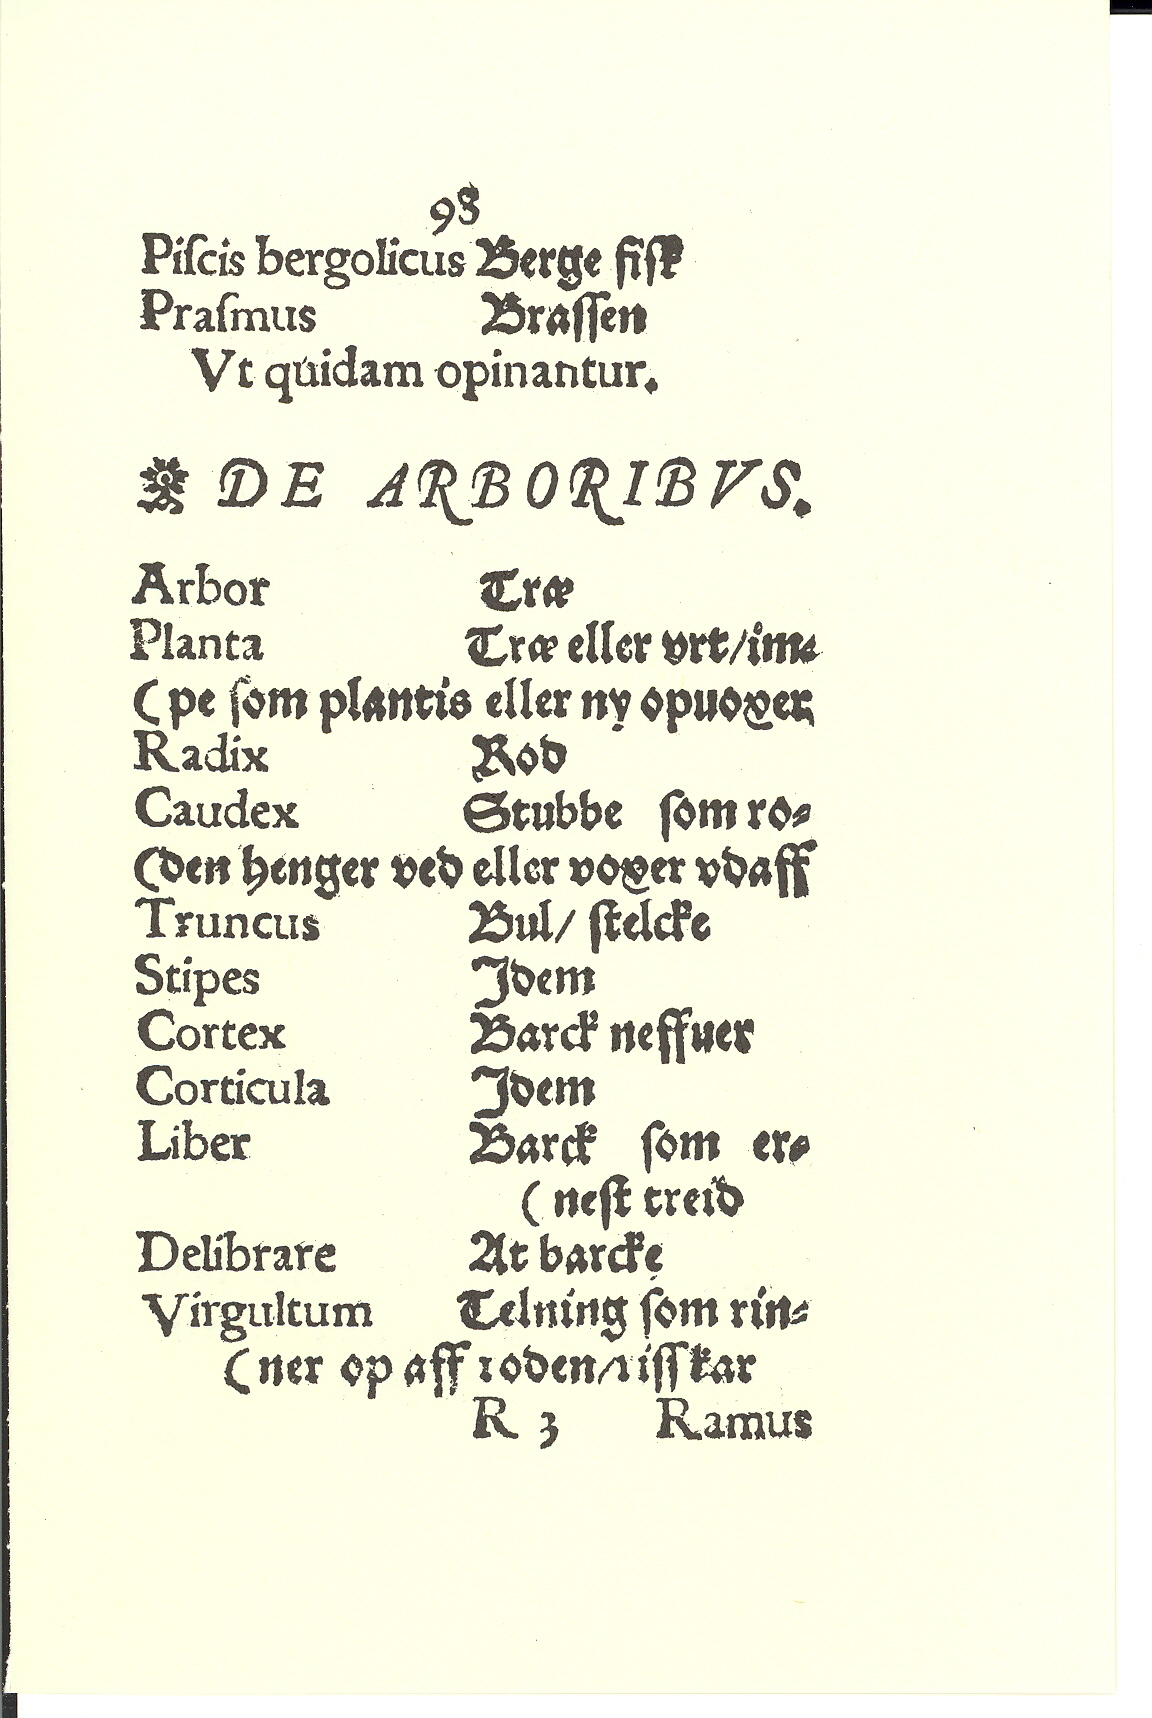 98
Piſcis bergolicus Berge fiſk
Praſmus Braſſen
Vt quidam opinantur.
DE ARBORIBVS.
Arbor Træ
Planta Træ eller vrt/im⸗
(pe ſom plantis eller ny opuoxer
Radix Rod
Caudex Stubbe ſom ro⸗
(den henger ved eller voxer vdaff
Truncus Bul/ ſtelcke
Stipes Jdem
Cortex Barck neffuer
Corticula Jdem
Liber Barck ſom er⸗
(neſt treid
Delibrare At barcke
Virgultum Telning ſom rin⸗
(ner op aff roden/riſſkar
R 3 Ramus